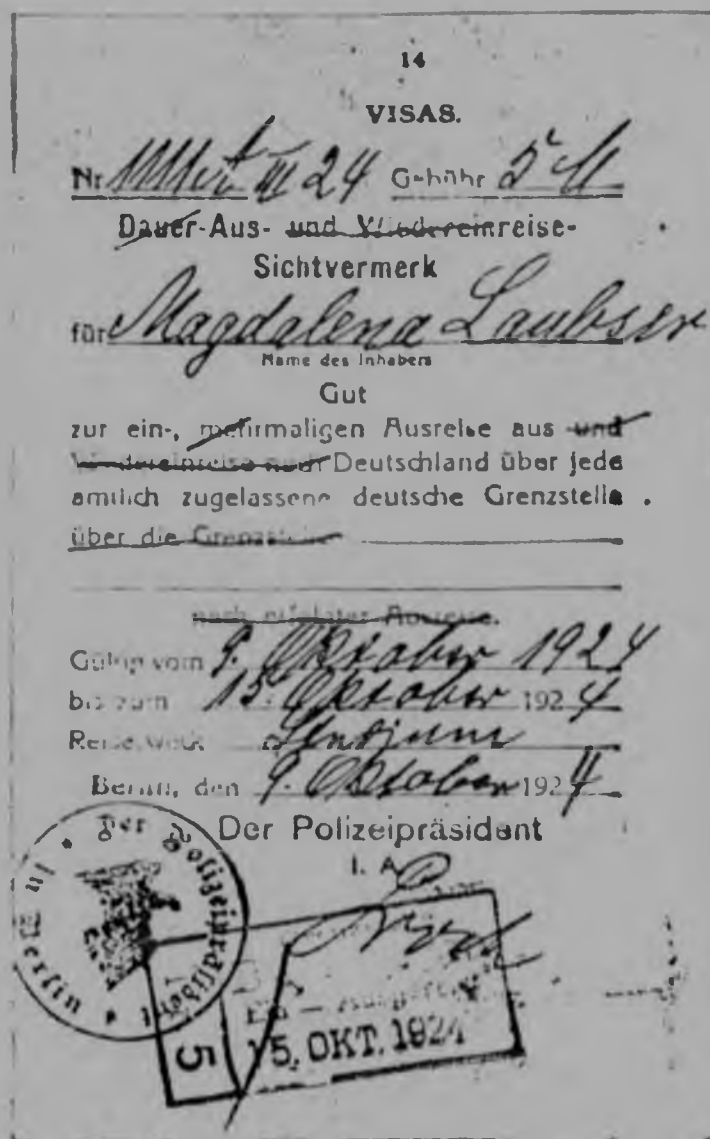 14
VISAS.
Nr III 24 Gebühr 5 M
Dauer-Aus- und Wiedereinreise-
Sichtvermerk
für Magdalena Laubser
Name des Inhabers
Gut
zur ein-, mehrmaligen Ausreise aus und
Wiedereinreise nach Deutschland über jede
amtlich zugelassene deutsche Grenzstelle.
über die Grenzstelle
nach erfolgter Ausreise.
Gültig vom 9. Oktober 1924
bis zum 15. Oktober 1924
Reisezweck Studium
Berlin, den 9. Oktober 1924
Der Polizeipräsident
I. A.
Der Polizeipräsident in Berlin
5
15. OKT. 1924